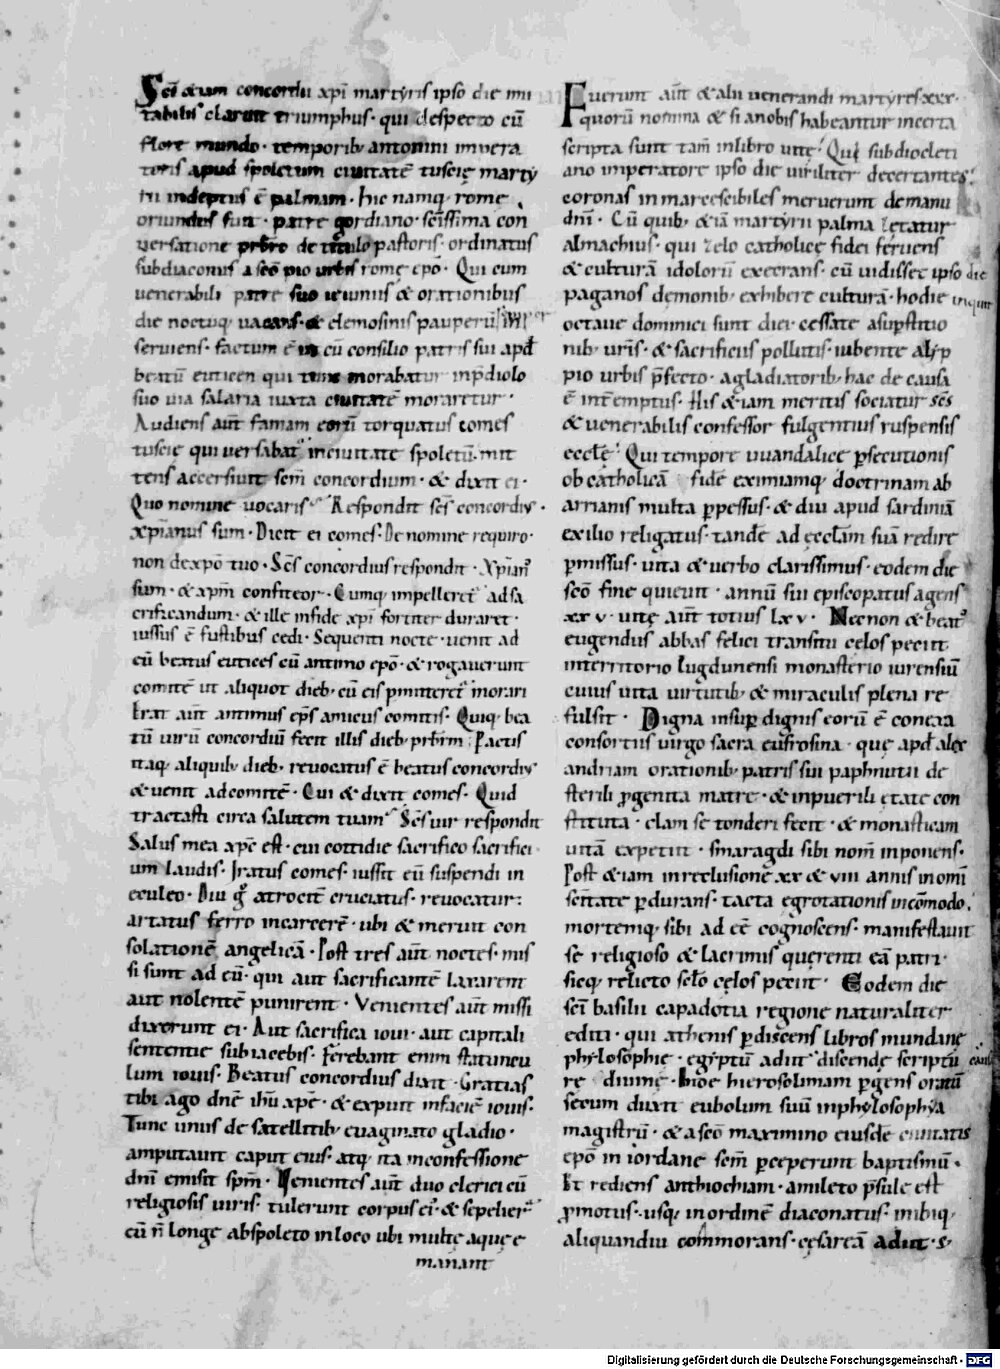 Sci̅ & iam concordii xp̅i martyris ipso die mu
tabilis claruit triumphus· qui despecto cu̅
flore mundo· temporib; antonini impera
toris apud spoletum ciuitate̅ tuscię marty
rii indeptus e̅ palmam· hic namq; romę
oriundus fuit· patre gordiano· sc̅issima con
uersatione pr̅bro de titulo pastoris· ordinatus
subdiaconus a sc̅o pio urbis romę ep̅o· Qui cum
uenerabili patre suo ieiuniis & orationibus
die noctuq; uacans· & elemosinis pauperu̅ insuper
seruiens· factum e̅ ut cu̅ consilio patris sui apd̅
beatu̅ euticen qui tunc morabatur inp̅diolo
suo uia salaria iuxta ciuitate̅ moraretur·
Audiens aut̅ famam eoru̅ torquatus comes
tuscię qui uersabat̉ inciuitate spoletu̅· mit
tens accersiuit sc̅m concordium· & dixit ei·
Quo nomine uocaris? Respondit sc̅s concordius·
xp̅ianus sum· Dicit ei comes· De nomine requiro·
non de xp̅o tuo· Sc̅s concordius respondit· Xp̅ian̉
sum· & xp̅m confiteor· Cumq; impelleret̉ ad sa
crificandum· & ille in fide xp̅i fortiter duraret·
iussus e̅ fustibus cedi· Sequenti nocte· uenit ad
eu̅ beatus eutices cu̅ antimo ep̅o· & rogauerunt
comite̅ ut aliquot dieb; cu̅ eis p̅mitteret̉ morari
Erat aut̅ antimus ep̅s amicus comitis· Quiq; bea
tu̅ uiru̅ concordiu̅ fecit illis dieb; pr̅brm· Factis
itaq; aliquib; dieb; reuocatus e̅ beatus concordius
& uenit ad comite̅· Cui & dixit comes· Quid
tractasti circa salutem tuam? Sc̅s uir respondit
Salus mea xp̅c est· cui cottidie sacrifico sacrifici
um laudis· Iratus comes· iussit eu̅ suspendi in
eculeo· Diu g̊ atrocite̅ cruciatus· reuocatur·
artatus ferro in carcere̅· ubi & meruit con
solatione̅ angelica̅· Post tres aut̅ noctes· mis
si sunt ad eu̅· qui aut sacrificante̅ laxarent
aut nolente̅ punirent· Venientes aut̅ missi
dixerunt ei· Aut sacrifica ioui· aut capitali
sententię subiacebis· Ferebant enim statuncu
lum iouis· Beatus concordius dixit· Gratias
tibi ago dn̅e ih̅u xp̅e· & expuit in facie̅ iouis·
Tunc unus de satellitib; euaginato gladio·
amputauit caput eius· atq; ita in confessione
dn̅i emisit sp̅m· Venientes aut̅ duo clerici cu̅
religiosis uiris· tulerunt corpus eỉ· & sepelier̅
eu̅ n̅ longe ab spoleto in loco ubi multę aquę e
manant
Fuerunt aut̅ & alii uenerandi martyres· xxx·
quoru̅ nomina & si a nobis habeantur incerta
scripta sunt tam̅ in libro uitę· Qui sub diocleti
ano imperatore ipso die uiriliter decertantes·
coronas inmarcescibiles meruerunt de manu
dn̅i· Cu̅ quib; & ia̅ martyrii palma lętatur
almachius· qui zelo catholicę fidei feruens
& cultura̅ idoloru̅ execrans· cu̅ uidisset ipso die
paganos dęmonib; exhibere cultura̅· hodie inquit
octauę dominici sunt diei· cessate a sup̅stitio
nib; ur̅is· & sacrificiis pollutis· iubente alip
pio urbis p̅fecto· a gladiatorib; hac de causa
e̅ int̅emptus· His & iam meritis sociatur sc̅s
& uenerabilis confessor fulgentius ruspensis
eccl̅ę· Qui tempore uuandalicę p̅secutionis
ob catholica̅ fide̅ eximiamq; doctrinam ab
arrianis multa p̅pessus· & diu apud sardinia̅
exilio religatus· tande̅ ad ęccl̅am sua̅ redire
p̅missus· uita & uerbo clarissimus· eodem die
sc̅o fine quieuit· annu̅ sui episcopatus agens
xx v· uitę aut̅ totius lx v· Necnon & beat̉
eugendus abbas felici transitu cęlos petiit
in territorio lugdunensi monasterio iurensiu̅
cuius uita uirtutib; & miraculis plena re
fulsit· Digna insup̅ dignis eoru̅ e̅ conexa
consortiis uirgo sacra eufrosina· quę apd̅ alex
andriam orationib; patris sui paphnutii de
sterili p̅genita matre· & in puerili ętate con
stituta· clam se tonderi fecit· & monasticam
uita̅ expetiit· smaragdi sibi nom̅ inponens·
Post & iam in reclusione̅ xx & viii annis in omi̅
sc̅itate p̅durans· tacta egrotationis incomodo·
mortemq; sibi ad ee̅ cognoscens· manifestauit
se religioso & lacrimis querenti ea̅ patri·
sicq; relicto sc̅lo cęlos petiit· Eodem die
sc̅i basilii capadotia regione naturaliter
editi· qui athenis p̅discens libros mundanę
phylosophię· egyptu̅ adiit discendę scripturę causa
diuinę· Hinc hierosolimam p̅gens oratu̅
secum duxit eubolum suu̅ in phylosophya
magistru̅· & a sc̅o maximino eiusde̅ ciuitatis
ep̅o in iordane sc̅m p̅ceperunt baptismu̅·
Et rediens anthiochiam· a mileto p̅sule est
p̅motus· usq; in ordine̅ diaconatus· inibiq;
aliquandiu commorans· cęsarea̅ adiit· s̅·